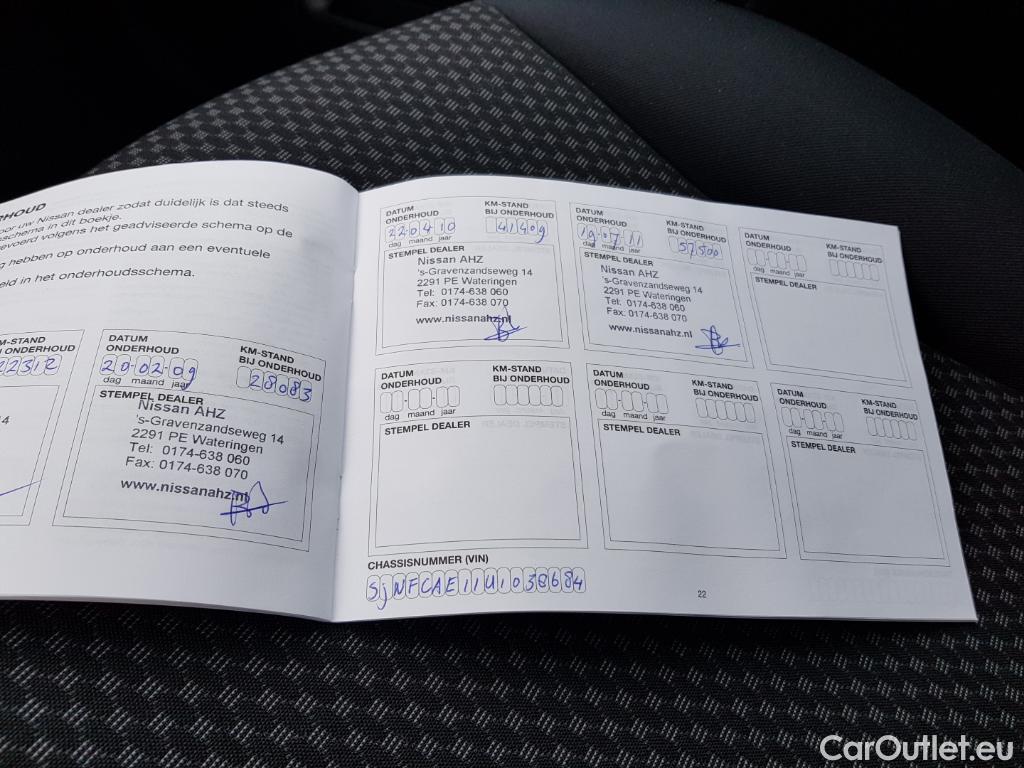 RHOUD
oor uw Nissan dealer zodat duidelijk is dat steeds
schema in dit boekje.
evoerd volgens het geadviseerde schema op de
g hebben op onderhoud aan een eventuele
eld in het onderhoudsschema.
M-STAND
J ONDERHOUD
22312
4
DATUM
ONDERHOUD
20-02-09
dag maand jaar
KM-STAND
BIJ ONDERHOUD
28083
STEMPEL DEALER
Nissan AHZ
's-Gravenzandseweg 14
2291 PE Wateringen
Tel: 0174-638 060
Fax: 0174-638 070
www.nissanahz.nl
DATUM
ONDERHOUD
220410
dag maand jaar
KM-STAND
BIJ ONDERHOUD
41409
STEMPEL DEALER
Nissan AHZ
's-Gravenzandseweg 14
2291 PE Wateringen
Tel: 0174-638 060
Fax: 0174-638 070
www.nissanahz.nl
DATUM
ONDERHOUD
19-07-11
dag maand jaar
KM-STAND
BIJ ONDERHOUD
57500
STEMPEL DEALER
Nissan AHZ
's-Gravenzandseweg 14
2291 PE Wateringen
Tel: 0174-638 060
Fax: 0174-638 070
www.nissanahz.nl
DATUM
ONDERHOUD
dag maand jaar
KM-STAND
BIJ ONDERHOUD
STEMPEL DEALER
DATUM
ONDERHOUD
dag maand jaar
KM-STAND
BIJ ONDERHOUD
STEMPEL DEALER
DATUM
ONDERHOUD
dag maand jaar
KM-STAND
BIJ ONDERHOUD
STEMPEL DEALER
DATUM
ONDERHOUD
dag maand jaar
KM-STAND
BIJ ONDERHOUD
STEMPEL DEALER
CHASSISNUMMER (VIN)
SjNFCAE11U1038684
22
CarOutlet.eu